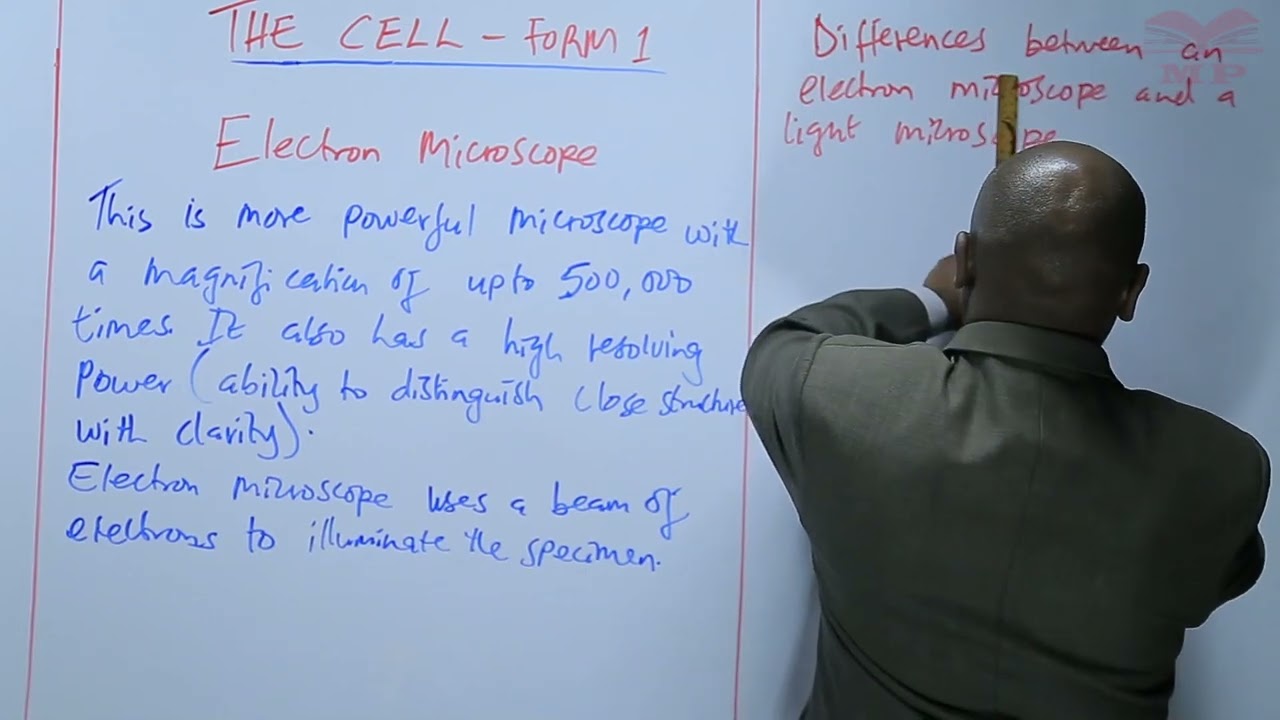 THE CELL - FORM 1
Electron Microscope
This is more powerful microscope with
a magnification of upto 500,000
times. It also has a high resolving
Power (ability to distinguish close structure
with clarity).
Electron microscope uses a beam of
electrons to illuminate the specimen.
Differences between an
electron microscope and a
light microscope
MP